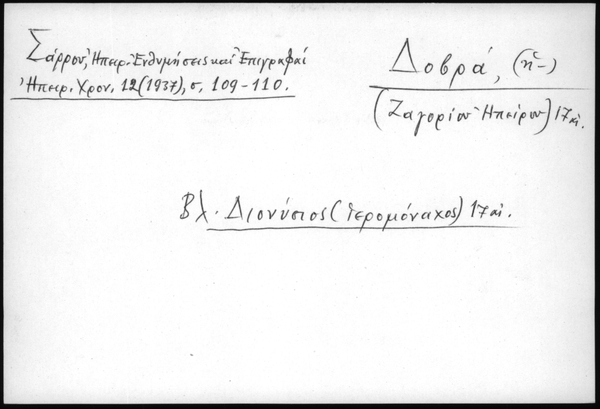 Σάρρου, Ἠπειρ. Ἐνθυμήσεις καὶ Ἐπιγραφαί
Ἠπειρ. Χρον. 12 (1937), σ. 109-110.
Δοβρά, (ἡ -)
(Ζαγορίου Ἠπείρου) 17 αἰ.
Βλ. Διονύσιος (ἱερομόναχος) 17 αἰ.